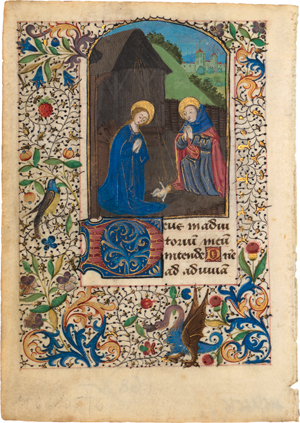 Deus in adiu
torium meu
intende Dne
ad adiuua